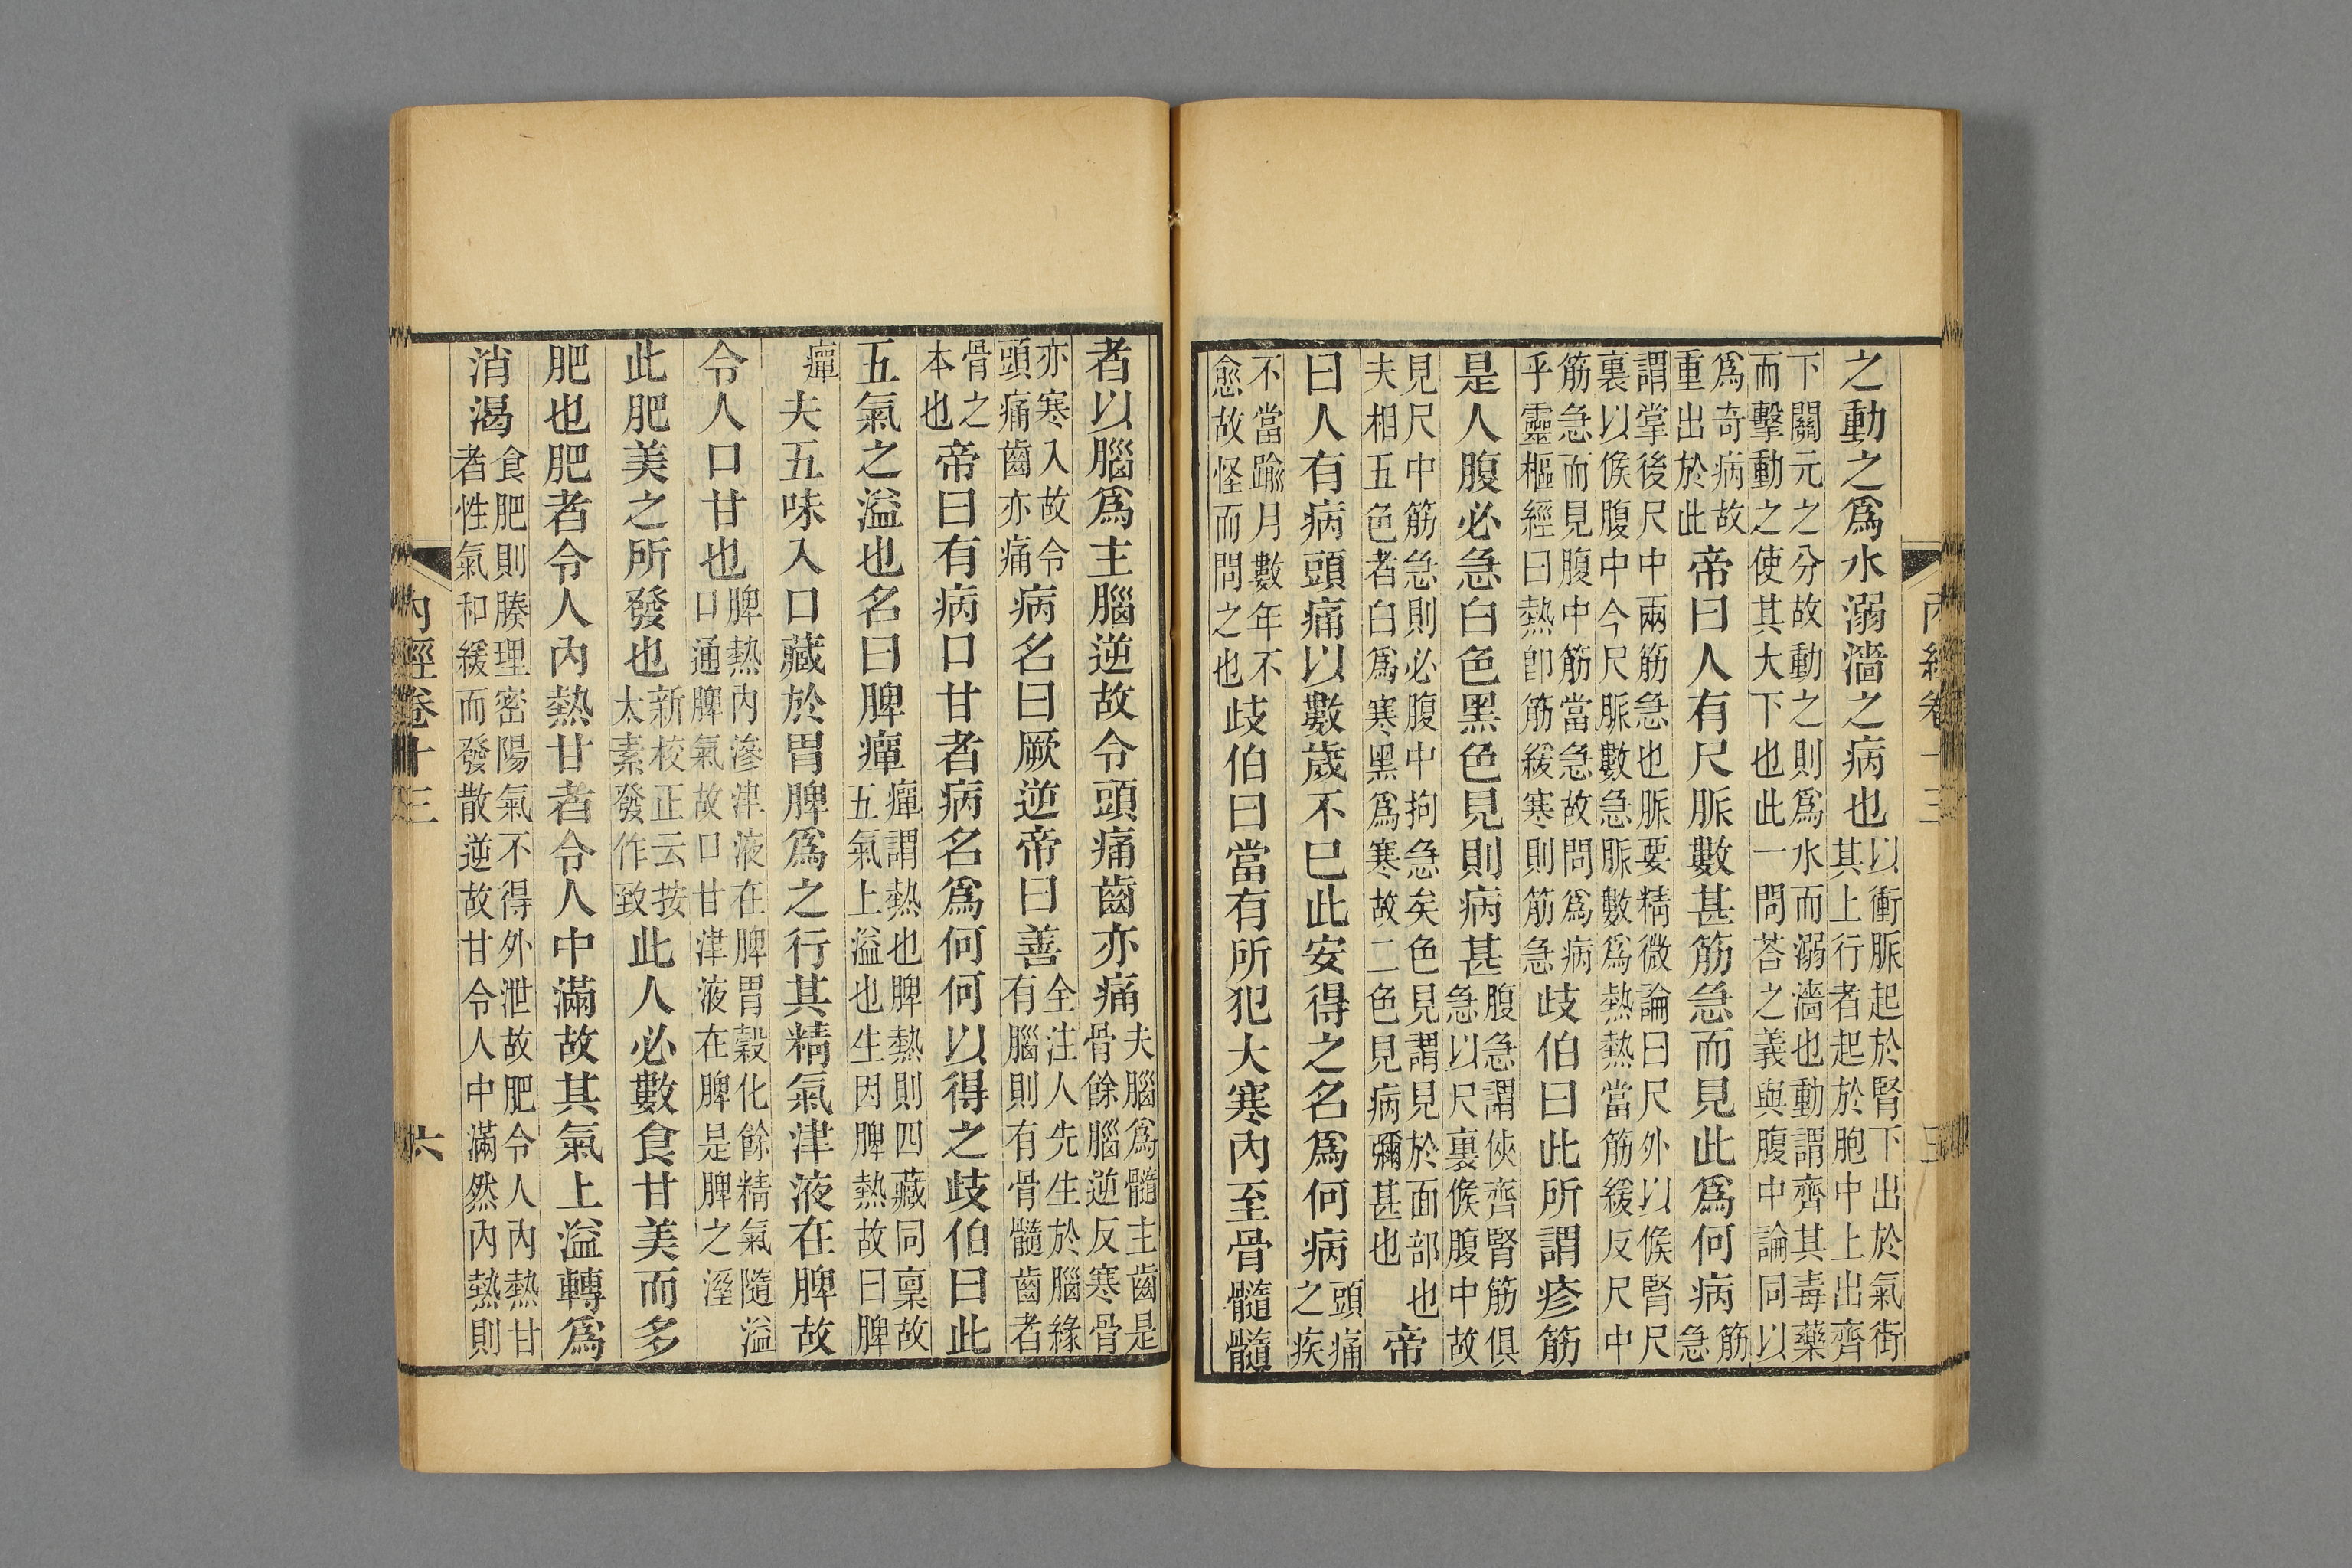 之動之爲水溺濇之病也
以衝脈起於腎下出於氣街
其上行者起於胞中上出齊
下關元之分故動之則爲水而溺濇也動謂齊其毒藥
而擊動之使其大下也此一問荅之義與腹中論同以
爲奇病故
重出於此
帝曰人有尺脈數甚筋急而見此爲何病
筋
急
謂掌後尺中兩筋急也脈要精微論曰尺外以候腎尺
裏以候腹中今尺脈數急脈數爲熱熱當筋緩反尺中
筋急而見腹中筋當急故問爲病
乎靈樞經曰熱卽筋緩寒則筋急
歧伯曰此所謂疹筋
是人腹必急白色黑色見則病甚
腹急謂俠齊腎筋俱
急以尺裏候腹中故
見尺中筋急則必腹中拘急矣色見謂見於面部也
夫相五色者白爲寒黑爲寒故二色見病彌甚也
帝
曰人有病頭痛以數歲不已此安得之名爲何病
頭痛
之疾
不當踰月數年不
愈故怪而問之也
歧伯曰當有所犯大寒內至骨髓髓
內經卷十三
者以腦爲主腦逆故令頭痛齒亦痛
夫腦爲髓主齒是
骨餘腦逆反寒骨
亦寒入故令
頭痛齒亦痛
病名曰厥逆帝曰善
全注人先生於腦緣
有腦則有骨髓齒者
骨之
本也
帝曰有病口甘者病名爲何何以得之歧伯曰此
五氣之溢也名曰脾癉
癉謂熱也脾熱則四藏同稟故
五氣上溢也生因脾熱故曰脾
癉
夫五味入口藏於胃脾爲之行其精氣津液在脾故
令人口甘也
脾熱內滲津液在脾胃穀化餘精氣隨溢
口通脾氣故口甘津液在脾是脾之溼
此肥美之所發也
新校正云按
太素發作致
此人必數食甘美而多
肥也肥者令人內熱甘者令人中滿故其氣上溢轉爲
消渴
食肥則腠理密陽氣不得外泄故肥令人內熱甘
者性氣和緩而發散逆故甘令人中滿然內熱則
內經卷十三
六